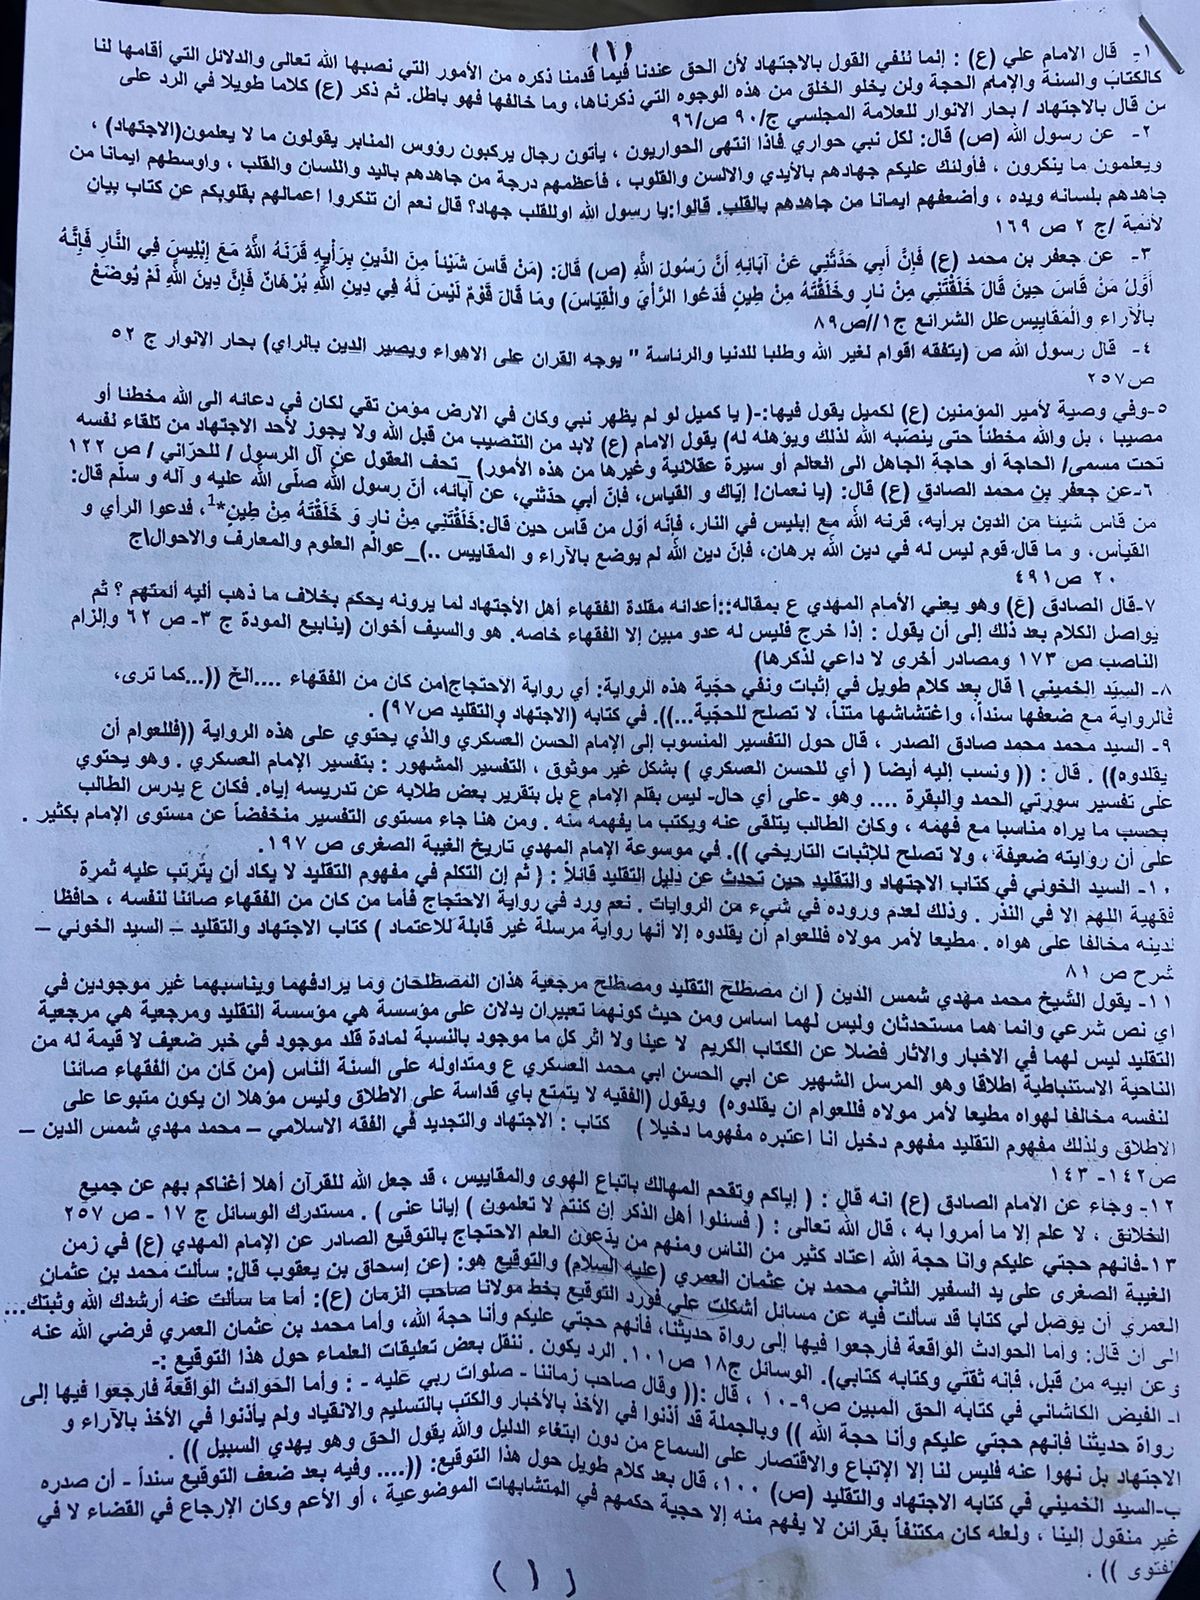 (١)
١- قال الامام علي (ع) : إنما ننفي القول بالاجتهاد لأن الحق عندنا فيما قدمنا ذكره من الأمور التي نصبها الله تعالى والدلائل التي أقامها لنا
كالكتاب والسنة والإمام الحجة ولن يخلو الخلق من هذه الوجوه التي ذكرناها، وما خالفها فهو باطل. ثم ذكر (ع) كلاما طويلا في الرد على
من قال بالاجتهاد / بحار الانوار للعلامة المجلسي ج/٩٠ ص/٩٦
٢- عن رسول الله (ص) قال: لكل نبي حواري فاذا انتهى الحواريون ، يأتون رجال يركبون رؤوس المنابر يقولون ما لا يعلمون(الاجتهاد) ،
ويعلمون ما ينكرون ، فأولئك عليكم جهادهم بالأيدي والالسن والقلوب ، فأعظمهم درجة من جاهدهم باليد واللسان والقلب ، واوسطهم ايمانا من
جاهدهم بلسانه ويده ، وأضعفهم ايمانا من جاهدهم بالقلب. قالوا:يا رسول الله اوللقلب جهاد؟ قال نعم أن تنكروا اعمالهم بقلوبكم عن كتاب بيان
لأئمة /ج ٢ ص ١٦٩
٣- عن جعفر بن محمد (ع) فَإِنَّ أَبِي حَدَّثَنِي عَنْ آبَائِهِ أَنَّ رَسُولَ اللَّهِ (ص) قَالَ: (مَنْ قَاسَ شَيْئاً مِنَ الدِّينِ بِرَأْيِهِ قَرَنَهُ اللَّهُ مَعَ إِبْلِيسَ فِي النَّارِ فَإِنَّهُ
أَوَّلُ مَنْ قَاسَ حِينَ قَالَ خَلَقْتَنِي مِنْ نَارٍ وَخَلَقْتَهُ مِنْ طِينٍ فَدَعُوا الرَّأْيَ وَالْقِيَاسَ) وَمَا قَالَ قَوْمٌ لَيْسَ لَهُ فِي دِينِ اللَّهِ بُرْهَانٌ فَإِنَّ دِينَ اللَّهِ لَمْ يُوضَعْ
بِالْآرَاءِ وَالْمَقَايِيسِ علل الشرائع ج١//ص٨٩
٤- قال رسول الله ص (يتفقه اقوام لغير الله وطلبا للدنيا والرئاسة " يوجه القران على الاهواء ويصير الدين بالراي) بحار الانوار ج ٥٢
ص٢٥٧
٥-وفي وصية لأمير المؤمنين (ع) لكميل يقول فيها:-( يا كميل لو لم يظهر نبي وكان في الارض مؤمن تقي لكان في دعائه الى الله مخطئا أو
مصيبا ، بل والله مخطئاً حتى ينصّبه الله لذلك ويؤهله له) يقول الإمام (ع) لابد من التنصيب من قبل الله ولا يجوز لأحد الاجتهاد من تلقاء نفسه
تحت مسمى/ الحاجة أو حاجة الجاهل الى العالم أو سيرة عقلائية وغيرها من هذه الأمور) _تحف العقول عن آل الرسول / للحرّاني / ص ١٢٢
٦-عن جعفر بن محمد الصادق (ع) قال: (يا نعمان! إيّاك و القياس، فإنّ أبي حدثني، عن آبائه، أنّ رسول الله صلّى الله عليه و آله و سلّم قال:
من قاس شيئا من الدين برأيه، قرنه الله مع إبليس في النار، فإنّه أوّل من قاس حين قال:خَلَقْتَنِي مِنْ نارٍ وَ خَلَقْتَهُ مِنْ طِينٍ*1، فدعوا الرأي و
القياس، و ما قال قوم ليس له في دين الله برهان، فإنّ دين الله لم يوضع بالآراء و المقاييس ..)_ عوالم العلوم والمعارف والاحوال\ج
٢٠ ص٤٩١
٧-قال الصادق (ع) وهو يعني الأمام المهدي ع بمقاله::أعدائه مقلدة الفقهاء أهل الأجتهاد لما يرونه يحكم بخلاف ما ذهب أليه أئمتهم ؟ ثم
يواصل الكلام بعد ذلك إلى أن يقول : إذا خرج فليس له عدو مبين إلا الفقهاء خاصه. هو والسيف أخوان (ينابيع المودة ج ٣- ص ٦٢ وإلزام
الناصب ص ١٧٣ ومصادر أخرى لا داعي لذكرها)
٨- السيد الخميني \ قال بعد كلام طويل في إثبات ونفي حجّية هذه الرواية: أي رواية الاحتجاج\من كان من الفقهاء ....الخ ((...كما ترى،
فالرواية مع ضعفها سنداً، واغتشاشها متناً، لا تصلح للحجّية...)). في كتابه (الاجتهاد والتقليد ص٩٧) .
٩- السيد محمد محمد صادق الصدر ، قال حول التفسير المنسوب إلى الإمام الحسن العسكري والذي يحتوي على هذه الرواية ((فللعوام أن
يقلدوه)) . قال : (( ونسب إليه أيضا ( أي للحسن العسكري ) بشكل غير موثوق ، التفسير المشهور : بتفسير الإمام العسكري . وهو يحتوي
على تفسير سورتي الحمد والبقرة .... وهو -على أي حال- ليس بقلم الإمام ع بل بتقرير بعض طلابه عن تدريسه إياه. فكان ع يدرس الطالب
بحسب ما يراه مناسبا مع فهمه ، وكان الطالب يتلقى عنه ويكتب ما يفهمه منه . ومن هنا جاء مستوى التفسير منخفضاً عن مستوى الإمام بكثير .
على أن روايته ضعيفة ، ولا تصلح للإثبات التاريخي )). في موسوعة الإمام المهدي تاريخ الغيبة الصغرى ص ١٩٧.
١٠- السيد الخوئي في كتاب الاجتهاد والتقليد حين تحدث عن دليل التقليد قائلاً : ( ثم إن التكلم في مفهوم التقليد لا يكاد أن يترتب عليه ثمرة
فقهية اللهم إلا في النذر . وذلك لعدم وروده في شيء من الروايات . نعم ورد في رواية الاحتجاج فأما من كان من الفقهاء صائنا لنفسه ، حافظا
لدينه مخالفا على هواه . مطيعا لأمر مولاه فللعوام أن يقلدوه إلا أنها رواية مرسلة غير قابلة للاعتماد ) كتاب الاجتهاد والتقليد – السيد الخوئي –
شرح ص ٨١
١١- يقول الشيخ محمد مهدي شمس الدين ( ان مصطلح التقليد ومصطلح مرجعية هذان المصطلحان وما يرادفهما ويناسبهما غير موجودين في
اي نص شرعي وانما هما مستحدثان وليس لهما اساس ومن حيث كونهما تعبيران يدلان على مؤسسة هي مؤسسة التقليد ومرجعية هي مرجعية
التقليد ليس لهما في الاخبار والاثار فضلا عن الكتاب الكريم لا عينا ولا اثر كل ما موجود بالنسبة لمادة قلد موجود في خبر ضعيف لا قيمة له من
الناحية الاستنباطية اطلاقا وهو المرسل الشهير عن ابي الحسن ابي محمد العسكري ع ومتداوله على السنة الناس (من كان من الفقهاء صائنا
لنفسه مخالفا لهواه مطيعا لأمر مولاه فللعوام ان يقلدوه) ويقول (الفقيه لا يتمتع باي قداسة على الاطلاق وليس مؤهلا ان يكون متبوعا على
الاطلاق ولذلك مفهوم التقليد مفهوم دخيل انا اعتبره مفهوما دخيلا ) كتاب : الاجتهاد والتجديد في الفقه الاسلامي – محمد مهدي شمس الدين –
ص١٤٢- ١٤٣
١٢- وجاء عن الامام الصادق (ع) انه قال : ( إياكم وتقحم المهالك باتباع الهوى والمقاييس ، قد جعل الله للقرآن أهلا أغناكم بهم عن جميع
الخلائق ، لا علم إلا ما أمروا به ، قال الله تعالى : ( فسئلوا أهل الذكر إن كنتم لا تعلمون ) إيانا عنى ) . مستدرك الوسائل ج ١٧ - ص ٢٥٧
١٣-فانهم حجتي عليكم وانا حجة الله اعتاد كثير من الناس ومنهم من يدعون العلم الاحتجاج بالتوقيع الصادر عن الإمام المهدي (ع) في زمن
الغيبة الصغرى على يد السفير الثاني محمد بن عثمان العمري (عليه السلام) والتوقيع هو: (عن إسحاق بن يعقوب قال: سألت محمد بن عثمان
العمري أن يوصل لي كتابا قد سألت فيه عن مسائل أشكلت علي فورد التوقيع بخط مولانا صاحب الزمان (ع): أما ما سألت عنه أرشدك الله وثبتك...
الى ان قال: وأما الحوادث الواقعة فأرجعوا فيها إلى رواة حديثنا، فأنهم حجتي عليكم وأنا حجة الله، وأما محمد بن عثمان العمري فرضي الله عنه
وعن ابيه من قبل، فإنه ثقتي وكتابه كتابي). الوسائل ج١٨ ص١٠١. الرد يكون . ننقل بعض تعليقات العلماء حول هذا التوقيع :-
ا- الفيض الكاشاني في كتابه الحق المبين ص٩-١٠ ، قال :(( وقال صاحب زماننا - صلوات ربي عليه - : وأما الحوادث الواقعة فارجعوا فيها إلى
رواة حديثنا فإنهم حجتي عليكم وأنا حجة الله )) وبالجملة قد أذنوا في الأخذ بالأخبار والكتب بالتسليم والانقياد ولم يأذنوا في الأخذ بالآراء و
الاجتهاد بل نهوا عنه فليس لنا إلا الإتباع والاقتصار على السماع من دون ابتغاء الدليل والله يقول الحق وهو يهدي السبيل )) .
ب-السيد الخميني في كتابه الاجتهاد والتقليد (ص) ١٠٠، قال بعد كلام طويل حول هذا التوقيع: ((.... وفيه بعد ضعف التوقيع سنداً - أن صدره
غير منقول إلينا ، ولعله كان مكتنفاً بقرائن لا يفهم منه إلا حجية حكمهم في المتشابهات الموضوعية ، أو الأعم وكان الإرجاع في القضاء لا في
الفتوى )) .
(١)